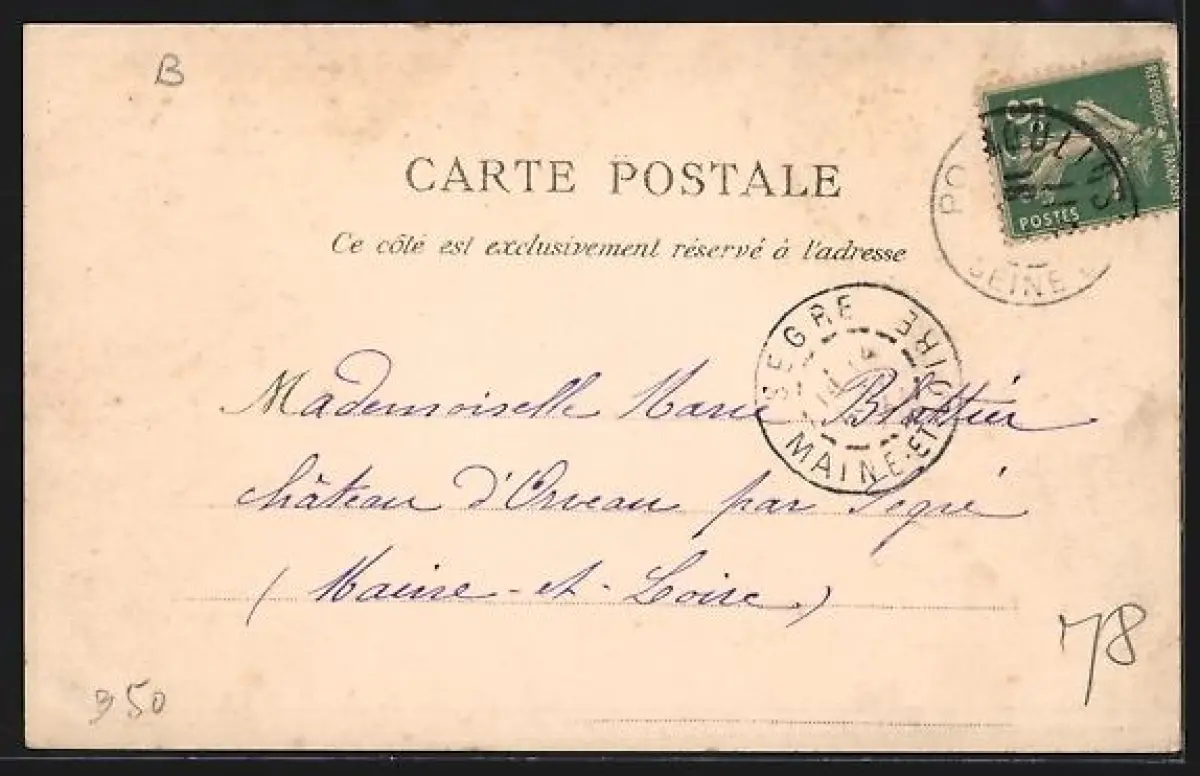 B
5
REPUBLIQUE FRANÇAISE
POSTES
CARTE POSTALE
Ce côté est exclusivement réservé à l'adresse
SEINE
SEGRE
MAINE-ET-LOIRE
Mademoiselle Marie Blottier
château d'Orveau par Segré
(Maine-et-Loire)
78
350